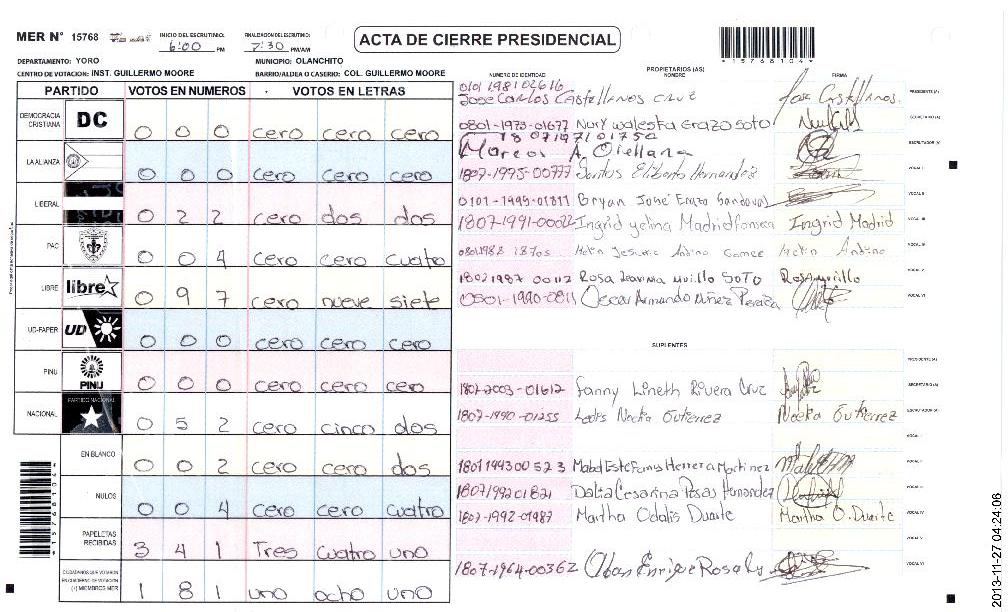 MER N° 15768
INICIO DEL ESCRUTINIO: 6:00 PM
FINALIZACION DEL ESCRUTINIO: 7:30 PM/AM
ACTA DE CIERRE PRESIDENCIAL
*15768104*
DEPARTAMENTO: YORO
MUNICIPIO: OLANCHITO
CENTRO DE VOTACION: INST. GUILLERMO MOORE
BARRIO/ALDEA O CASERIO: COL. GUILLERMO MOORE
PARTIDO VOTOS EN NUMEROS VOTOS EN LETRAS
DEMOCRACIA CRISTIANA DC 0 0 0 cero cero cero
LA ALIANZA 0 0 0 cero cero cero
LIBERAL 0 2 2 cero dos dos
PAC 0 0 4 cero cero cuatro
LIBRE libre 0 9 7 cero nueve siete
UD-FAPER UD 0 0 0 cero cero cero
PINU PINU 0 0 0 cero cero cero
NACIONAL PARTIDO NACIONAL 0 5 2 cero cinco dos
EN BLANCO 0 0 2 cero cero dos
NULOS 0 0 4 cero cero cuatro
PAPELETAS RECIBIDAS 3 4 1 Tres cuatro uno
CIUDADANOS QUE VOTARON EN CUADERNO DE VOTACION (+) MIEMBROS MER 1 8 1 uno ocho uno
*15768104*
PROPIETARIOS (AS)
NUMERO DE IDENTIDAD NOMBRE FIRMA
0101 198102616 Jose Carlos Castellanos Cruz Jose Castellanos. PRESIDENTE (A)
0801-1973-01677 Nury Waleska Erazo Soto SECRETARIO (A)
Marcos A. Orellana ESCRUTADOR (A)
1807-1995-00777 Santos Eliberto Hernandez VOCAL I
0101-1999-01811 Bryan José Erazo Sandoval VOCAL II
1807-1991-00022 Ingrid yelina Madrid fonseca Ingrid Madrid VOCAL III
Gomez VOCAL IV
1802 1987 00112 Rosa Joanna Murillo Soto Rosa Murillo VOCAL V
0801-1990-0811 Oscar Armando Nuñez Pereira VOCAL VI
SUPLENTES
PRESIDENTE (A)
1807-2003-01612 Fanny Lineth Rivera Cruz SECRETARIO (A)
1807-1990-01255 Gutierrez Gutierrez ESCRUTADOR (A)
VOCAL I
1807 1994 00 52 3 Mabel Estefany Herrera Martinez VOCAL II
1807199201821 Dalia Cesarina Posas Hernandez VOCAL III
1807-1992-01987 Martha Odalis Duarte Martha O. Duarte VOCAL IV
VOCAL V
1807-1964-00362 Enrique Rosales VOCAL VI
2013-11-27 04:24:06